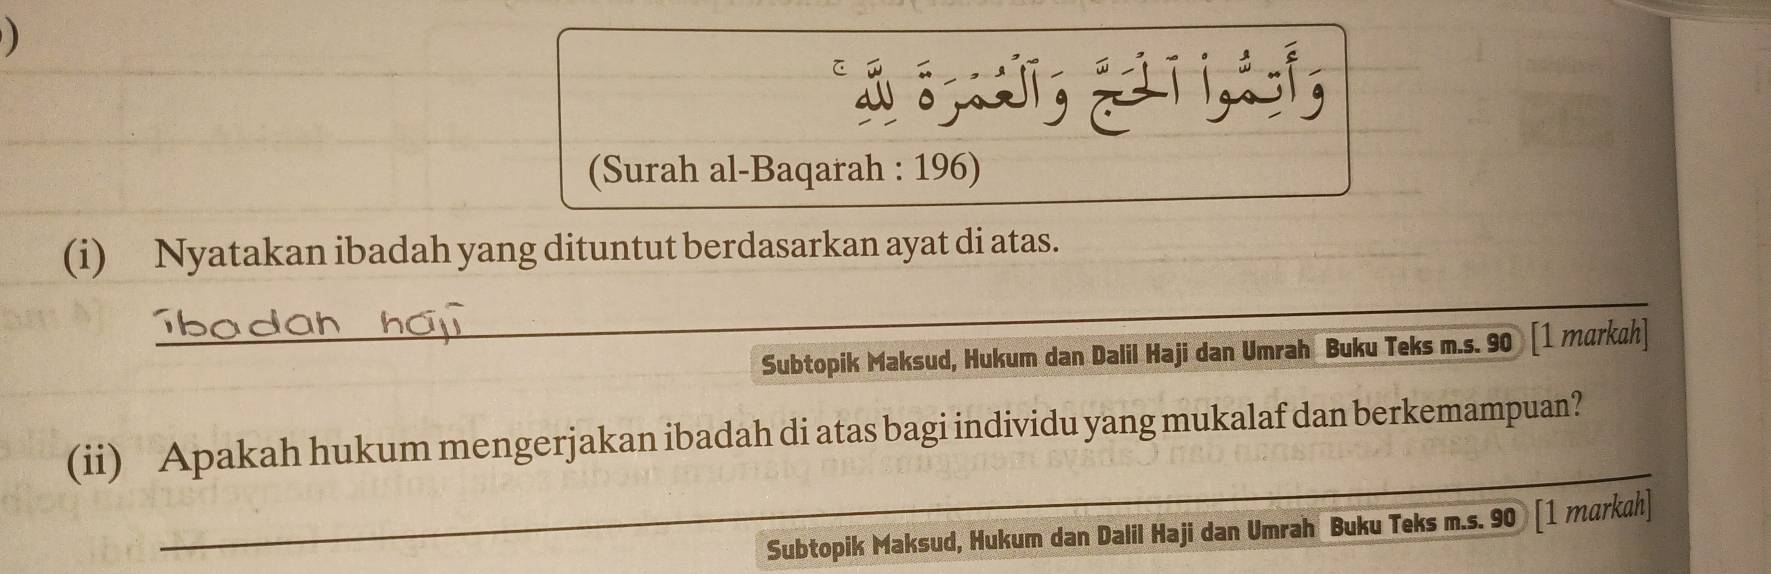 )
وَأَتِمُّوا۟ ٱلْحَجَّ وَٱلْعُمْرَةَ لِلَّهِ ۚ
(Surah al-Baqarah : 196)
(i) Nyatakan ibadah yang dituntut berdasarkan ayat di atas.
ibadah haji
Subtopik Maksud, Hukum dan Dalil Haji dan Umrah Buku Teks m.s. 90 [1 markah]
(ii) Apakah hukum mengerjakan ibadah di atas bagi individu yang mukalaf dan berkemampuan?
Subtopik Maksud, Hukum dan Dalil Haji dan Umrah Buku Teks m.s. 90 [1 markah]